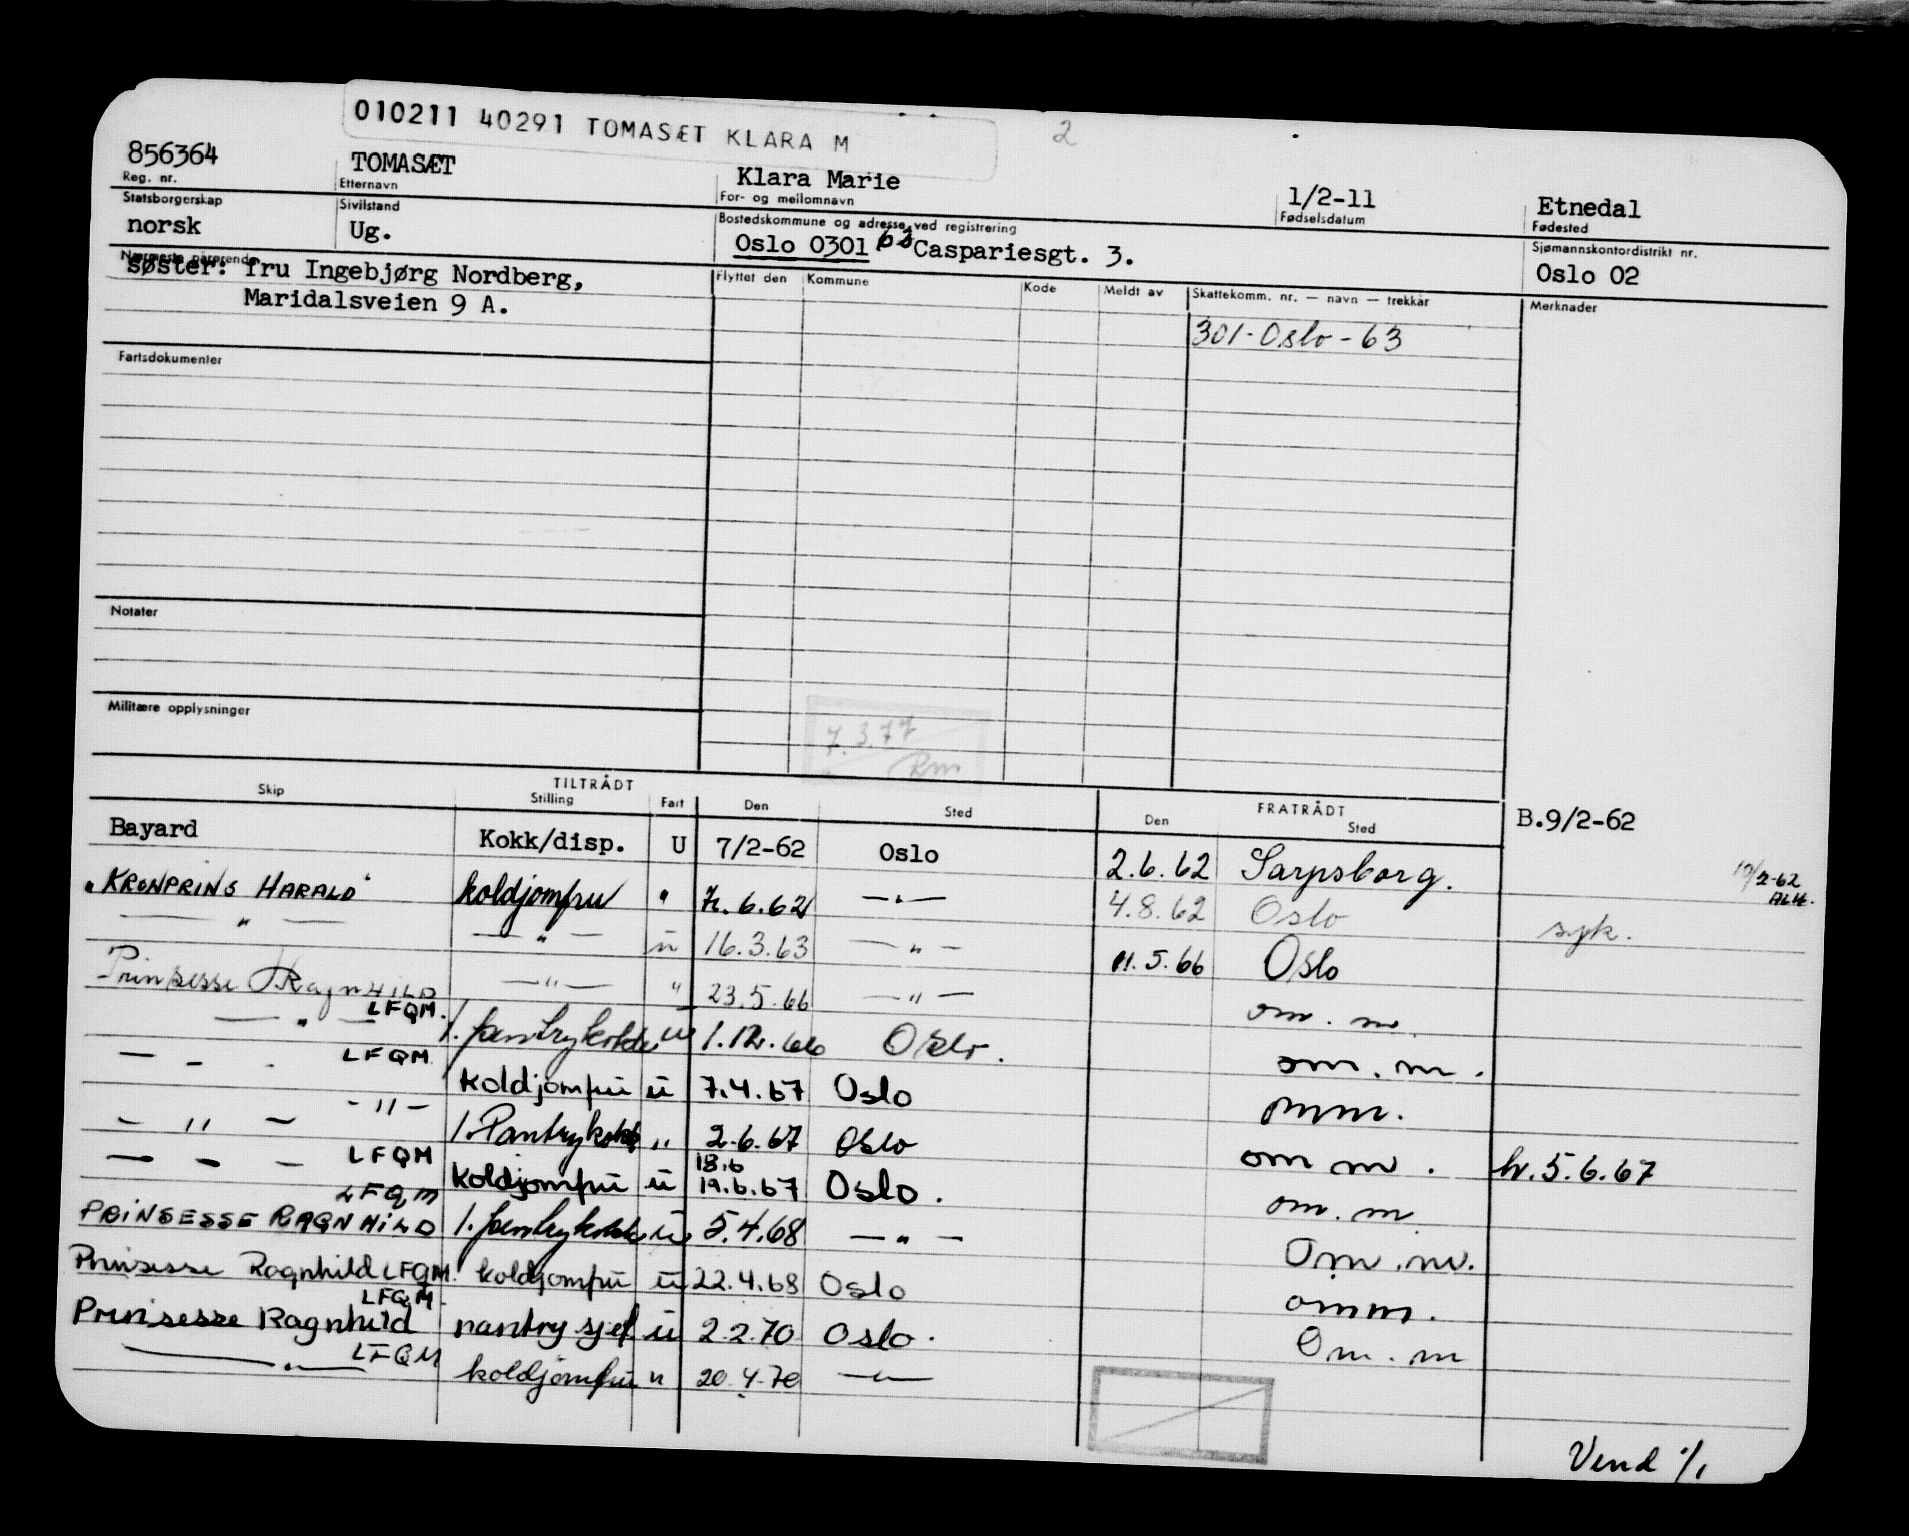 010211 40291 TOMASÆT KLARA M
2
856364 TOMASÆT Klara Marie 1/2-11 Etnedal
Reg. nr. Etternavn For- og mellomnavn Fødselsdatum Fødested
Statsborgerskap Sivilstand Bostedskommune og adresse ved registrering Sjømannskontordistrikt nr.
norsk Ug. Oslo 0301 63 Caspariesgt. 3. Oslo 02
Nærmeste pårørende Flyttet den Kommune Kode Meldt av Skattekomm. nr. — navn — trekkår Merknader
søster: fru Ingebjørg Nordberg,
Maridalsveien 9 A.
301-Oslo-63
Fartsdokumenter
Notater
Militære opplysninger
7.3.77
Rm
TILTRÅDT FRATRÅDT
Skip Stilling Fart Den Sted Den Sted
Bayard Kokk/disp. U 7/2-62 Oslo 2.6.62 Sarpsborg. B.9/2-62
"KRONPRINS HARALD" koldjomfru " 7.6.62 —"— 4.8.62 Oslo syk. 2-62
— " — — " — ü 16.3.63 — " — 11.5.66 Oslo
Prinsesse RagnHILD — " — " 23.5.66 — " — om. m.
LFQM.
— " — 1. pantrykokk u 1.12.66 Oslo. om. m.
LFQM
— - - koldjomfru ü 7.4.67 Oslo omm.
- " -
— " — 1. Pantrykokk " 2.6.67 Oslo om m. h. 5.6.67
LFQM
— - — koldjomfru ü 18.6 19.6.67 Oslo. om. m
LFQM
PRINSESSE RAGNHILD 1. pantrykokk ü 5.4.68 — " — Om. m.
Prinsesse Ragnhild LFQM koldjomfru ü 22.4.68 Oslo omm.
LFQM.
Prinsesse Ragnhild pantry sjef ü 2.2.70 Oslo. Om. m
LFQM
— " — koldjomfru u 20.4.70 —"—
Vend %